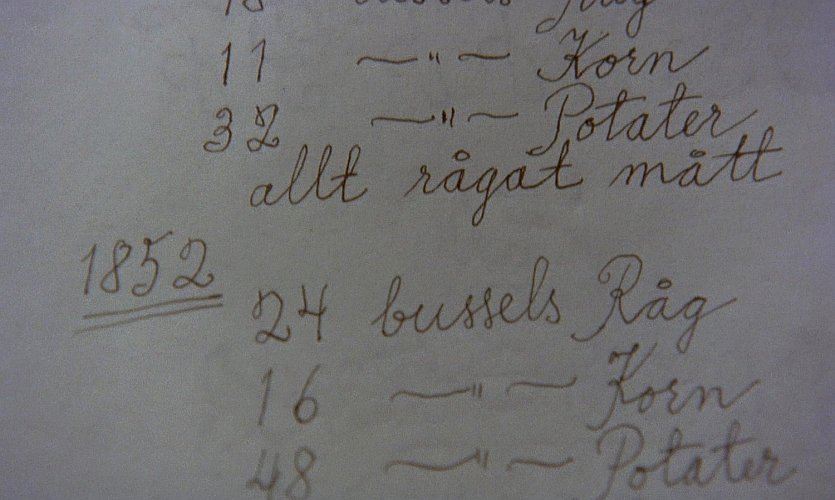 11 —"— Korn
32 —"— Potater
allt rågat mått
1852
24 bussels Råg
16 —"— Korn
48 —"— Potater